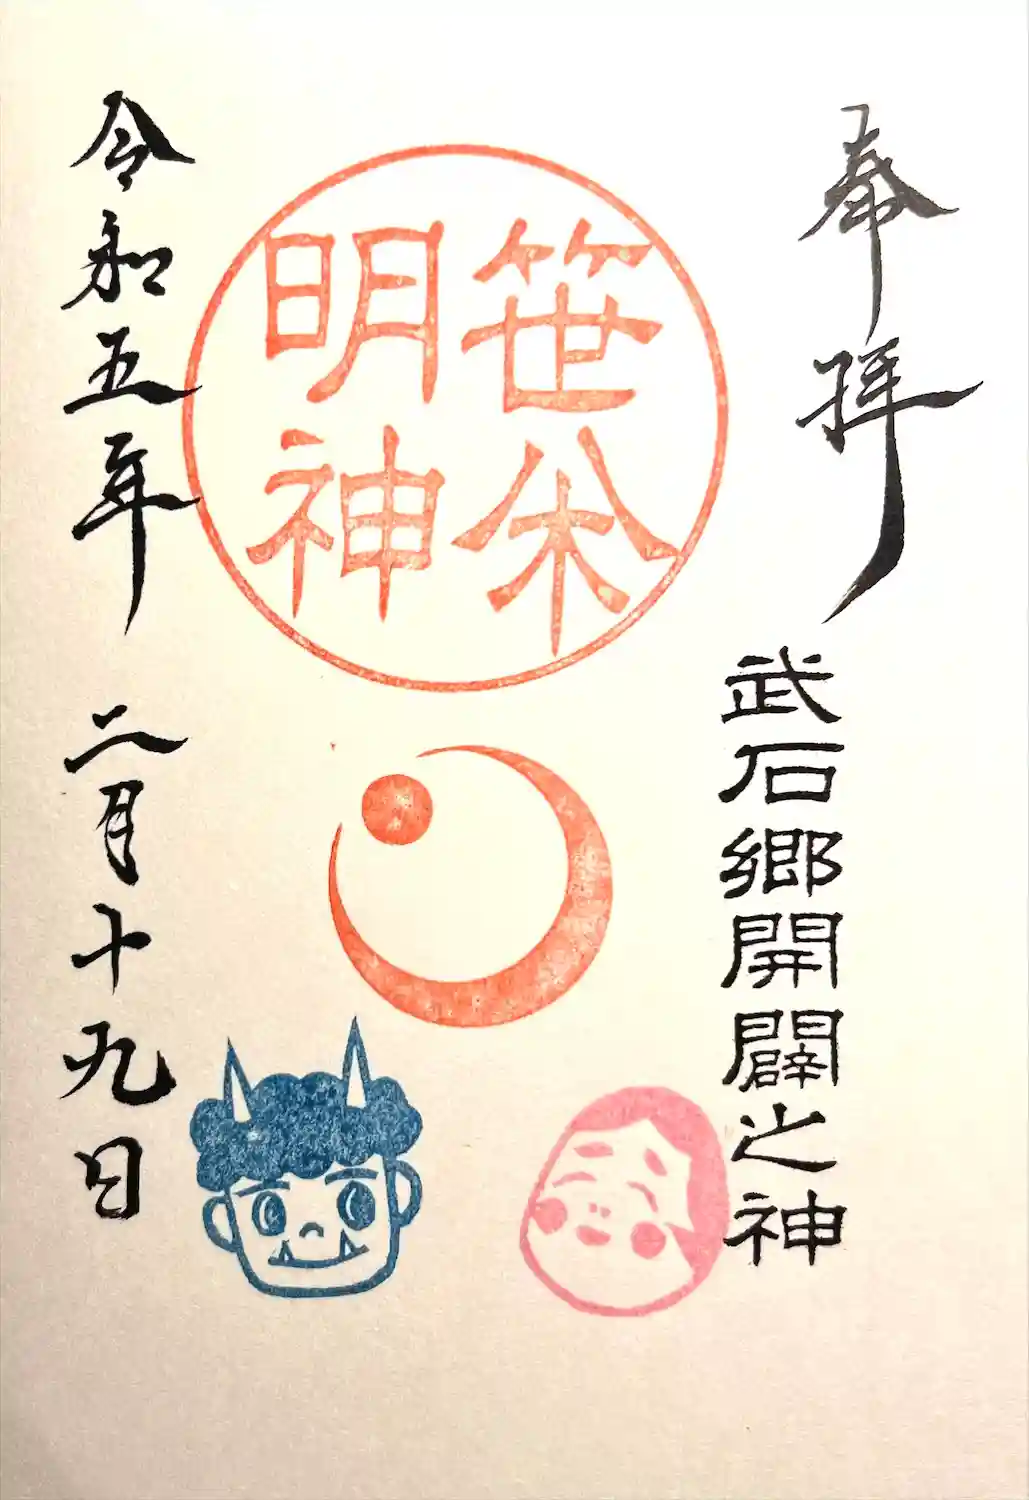 奉拝
武石郷開闢之神
笹
明神
令和五年 二月十九日